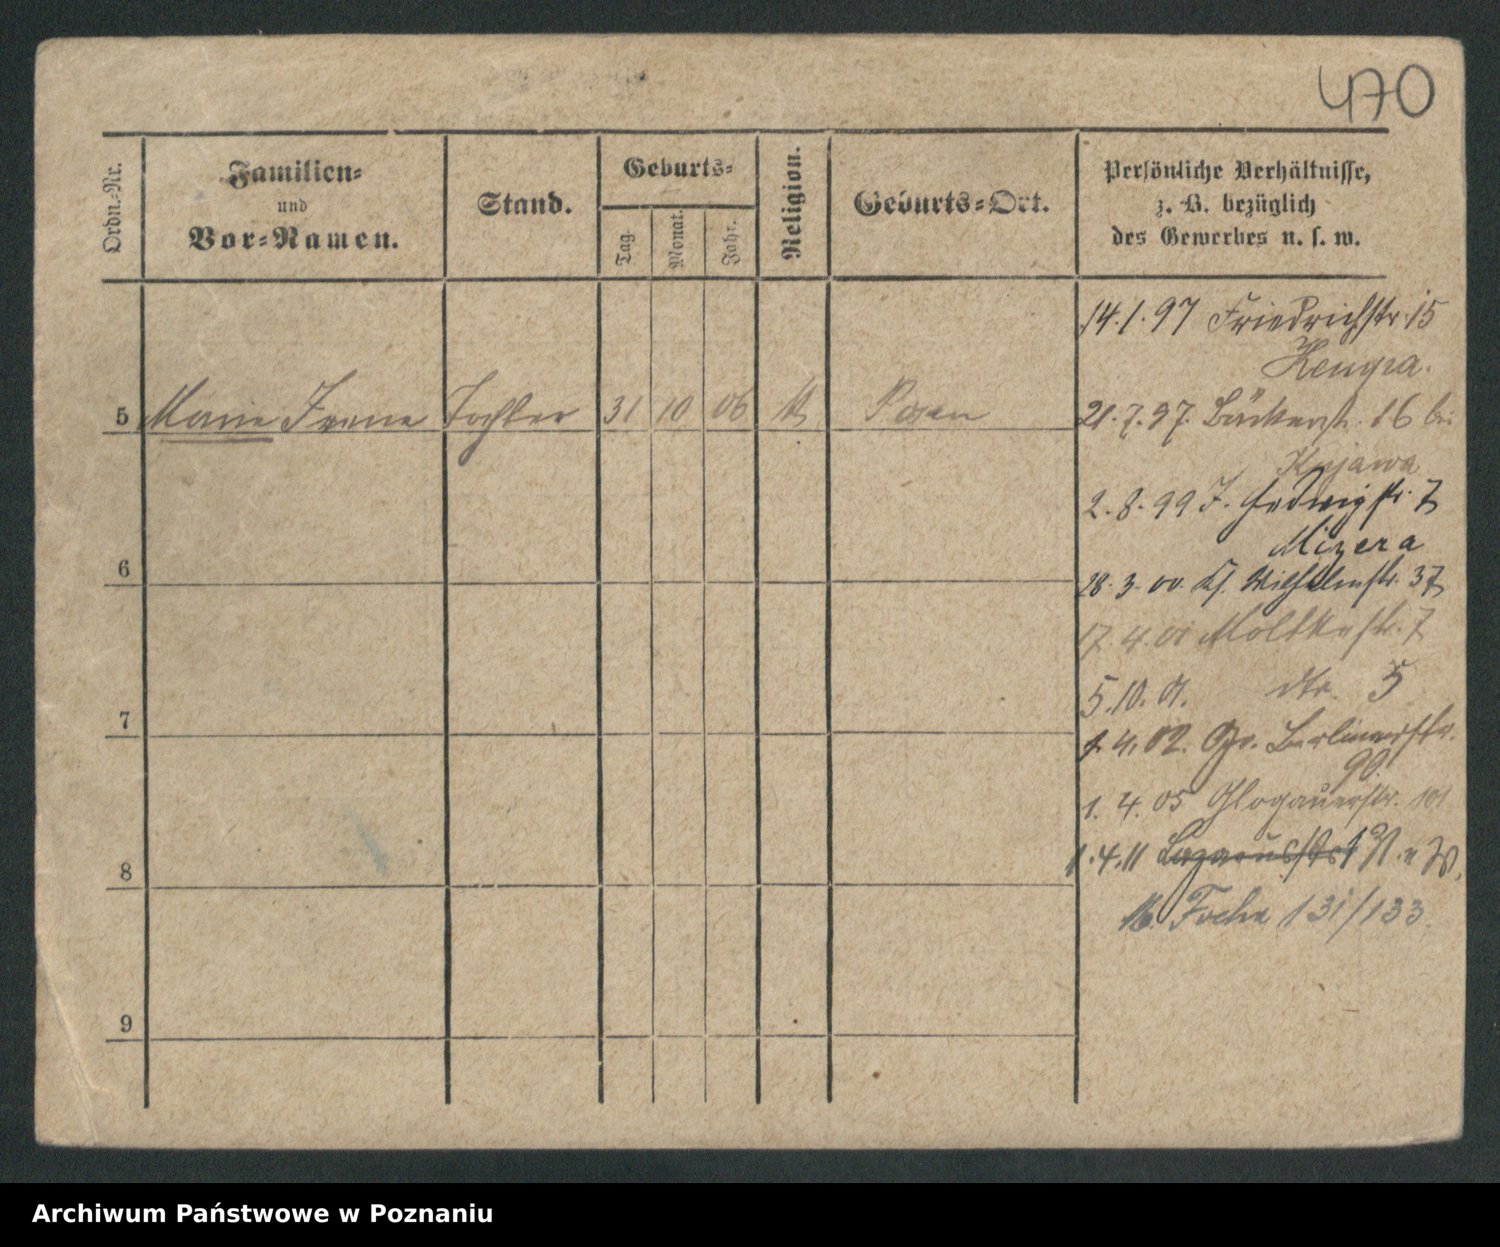 470
Ordn.-Nr.
Familien-
und
Vor-Namen.
Stand.
Geburts-
Tag.
Monat.
Jahr.
Religion.
Geburts-Ort.
Persönliche Verhältnisse,
z. B. bezüglich
des Gewerbes u. s. w.
5 Marie Irene Tochter 31 10 06 k Posen
6
7
8
9
14.1.97 Friedrichstr. 15
21.7.97. Bäckerstr. 16 bei
Kujawa
2.8.99 J. Hedwigstr. 7
Mizera
28.3.00. Wilhelmstr. 37
17.4.01 Moltkestr. 7
5.10.01. dto. 5
1.4.02. Gr. Berlinerstr.
90.
1.4.05 Glogauerstr. 101
1.4.11 Lazarusstr. 1
16. Focha 131/133
Archiwum Państwowe w Poznaniu